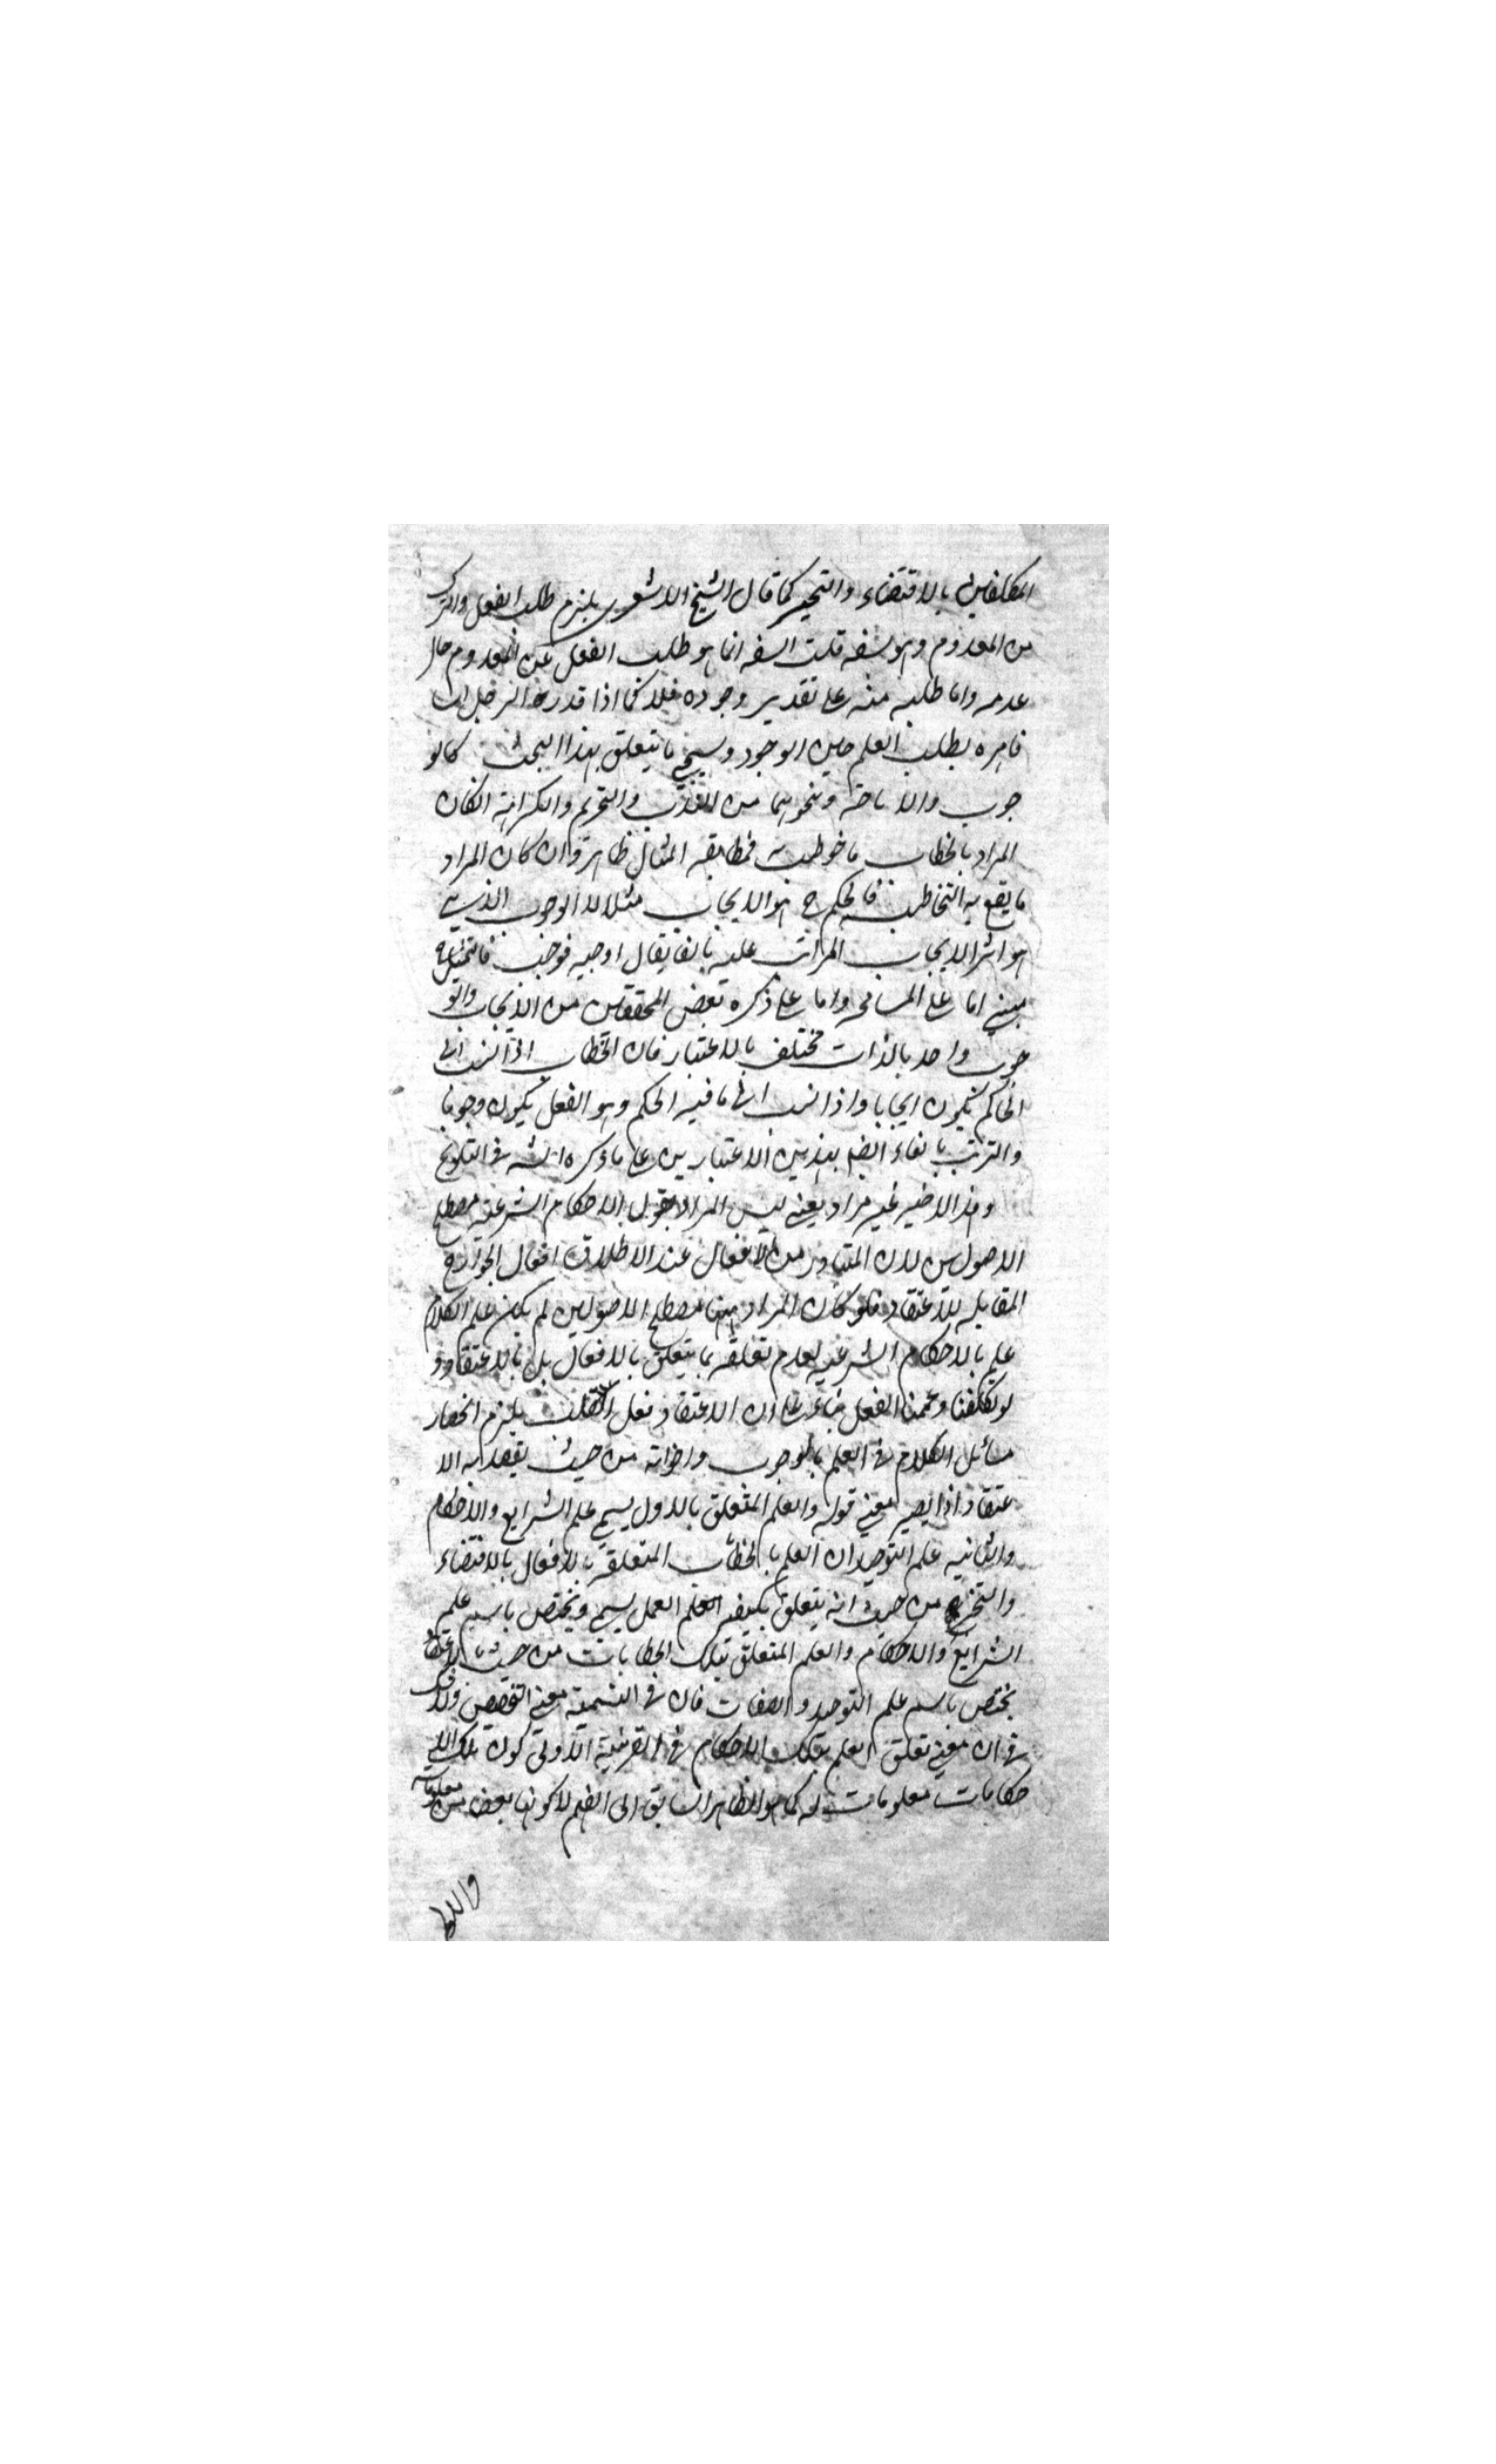 المكلفين بالاقتضاء والتخيير كما قال الشيخ الاشعرى يلزم طلب الفعل والترك
من المعدوم وهو سفه قلت السفه انما هو طلب الفعل عن المعدوم حال
عدمه واما طلبه منه على تقدير وجوده فلا كما اذا قدر الرجل ابنا
فامره بطلب العلم حين الوجود وسيجئ ما يتعلق بهذا البحث كالو
جوب والاباحة ونحوهما من الندب والتحريم والكراهة ان كان
المراد بالخطاب ما خوطب به فمطابقة المثال ظاهرة وان كان المراد
ما يقع به التخاطب فالحكم ح هو الايجاب مثلا لا الوجوب الذى
هو اثر الايجاب المرتب عليه بالفا يقال اوجبه فوجب فالتمثيل ح
مبنى اما على المسامحة واما على ذكره بعض المحققين من الايجاب والو
جوب واحد بالذات مختلف بالاعتبار فان الخطاب اذا نسب الى
الحاكم يكون ايجابا واذا نسب الى ما فيه الحكم وهو الفعل يكون وجوبا
والترتب بالفاء ايضا بهذين الاعتبارين على ما ذكره الش فى التلويح
وهذا الاخير غير مراد يعنى ليس المراد بقوله الاحكام الشرعية مصطلح
الاصوليين لان المتبادر من الافعال عند الاطلاق افعال الجوارح
المقابلة للاعتقاد فلو كان المراد ههنا مصطلح الاصوليين لم يكن علم الكلام
علم بالاحكام الشرعية لعدم تعلقه بما يتعلق بالافعال بل بالاعتقاد و
لو تكلفنا وعممنا الفعل بناء على ان الاعتقاد فعل القلب يلزم انحصار
مسائل الكلام فى العلم بالوجوب واخواته من حيث يقصد به الا
عتقاد اذ يصير معنى قوله والعلم المتعلق بالاول يسمى علم الشرايع والاحكام
والثانية علم التوحيد ان العلم بالخطاب المتعلقة بالافعال بالاقتضاء
والتخير من حيث انه يتعلق بكيفية العمل يسمى ويختص باسم علم
الشرايع والاحكام والعلم المتعلق بتلك الخطابات من حيث الاعتقاد
يختص باسم علم التوحيد والصفات فان فى التسمية معنى التخصيص ولا شك
فى ان معنى تعلق العلم بتلك الاحكام فى القرينة الاولى كون تلك الا
حكامات معلومات له كما هو الظاهر السابق الى الفهم لا كونها بعض من معلوماته